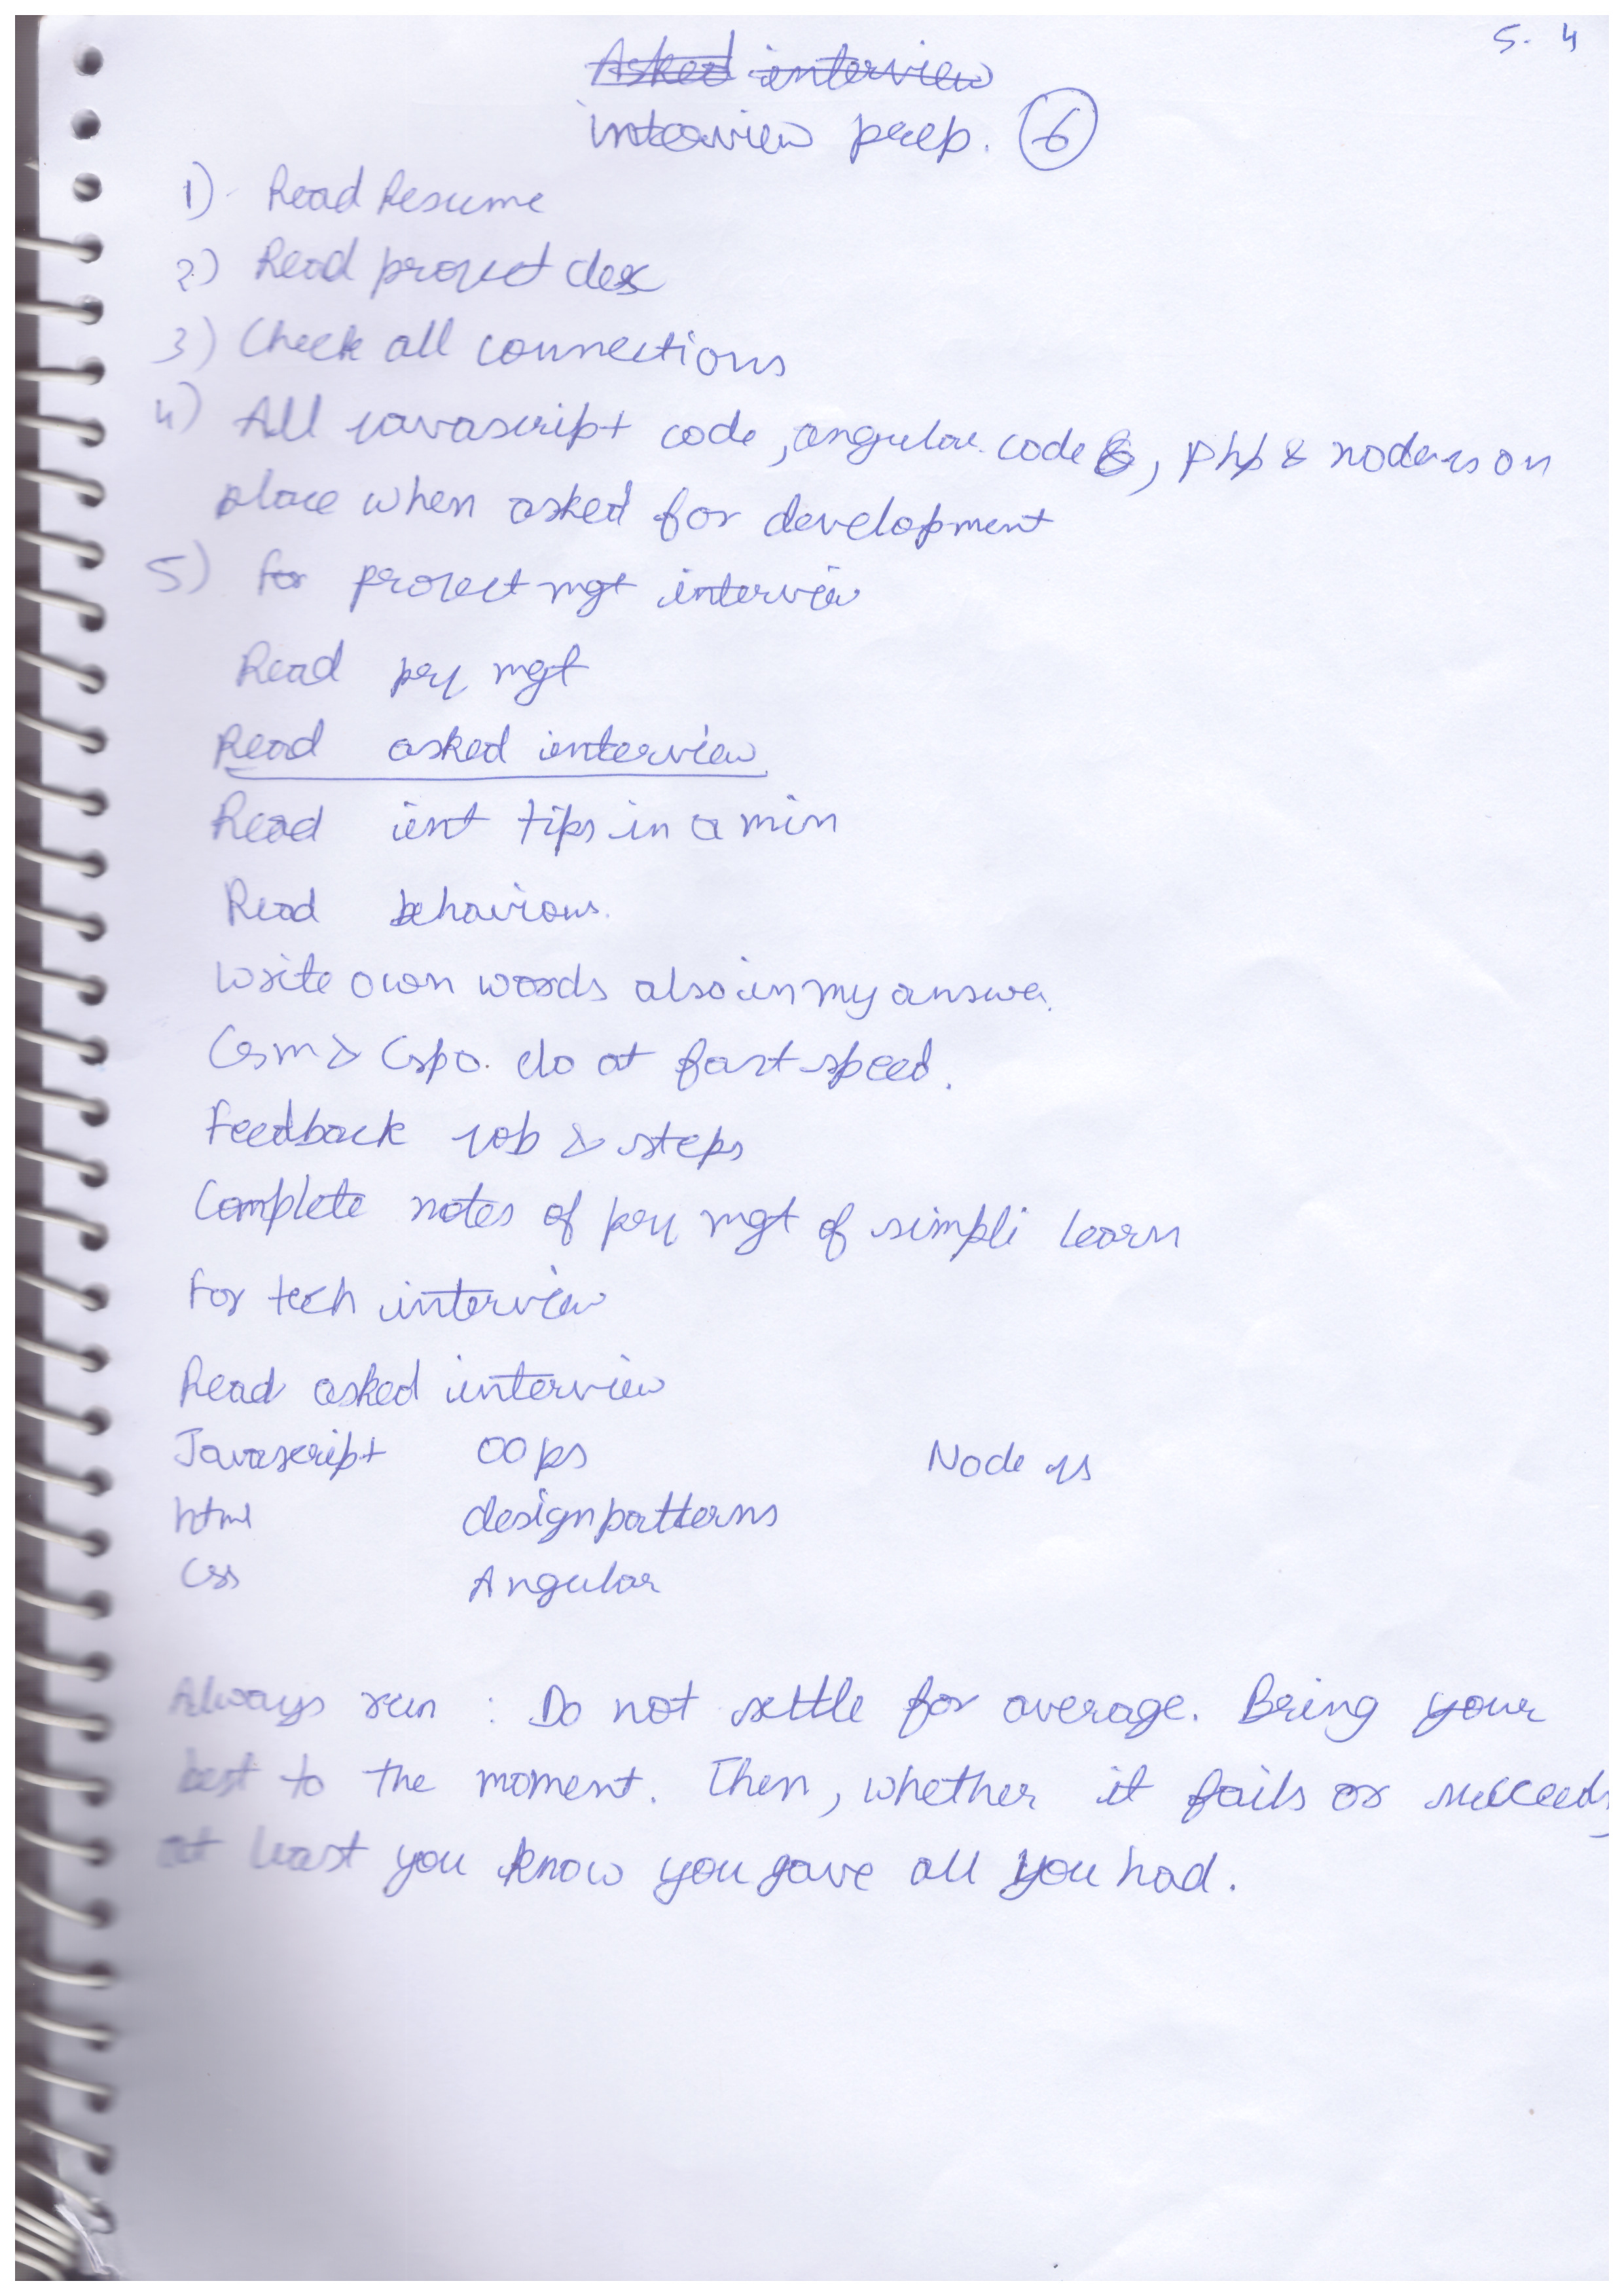 S. 4
Asked interview
interview prep. 6
1) Read Resume
2) Read project des
3) Check all connections
4) All javascript code, angular code, php & nodejs on
place when asked for development
5) for project mgt interview
Read prj mgt
Read asked interview
Read int tips in a min
Read behaviour.
Write own words also in my answer.
Csm & Cspo. do at fast speed.
Feedback job & steps
Complete notes of prj mgt of simpli learn
For tech interview
Read asked interview
Javascript OOps Node js
html design patterns
Css Angular
Always run : Do not settle for average. Bring your
best to the moment. Then, whether it fails or succeeds
at least you know you gave all you had.